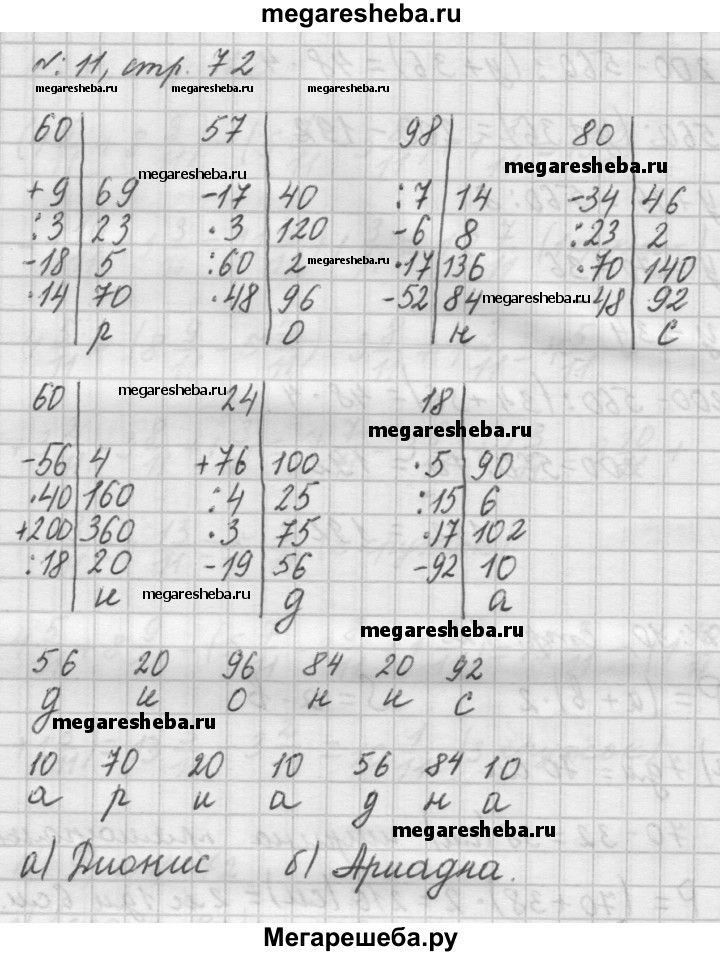 megaresheba.ru
№ 11, стр. 72
megaresheba.ru megaresheba.ru megaresheba.ru
60 57 98 80
megaresheba.ru megaresheba.ru
+9 69 -17 40 :7 14 -34 46
:3 23 ·3 120 -6 8 :23 2
-18 5 :60 2 megaresheba.ru ·17 136 ·70 140
·14 70 ·48 96 -52 84 megaresheba.ru -48 92
р о н с
60 megaresheba.ru 24 18
megaresheba.ru
-56 4 +76 100 ·5 90
·40 160 :4 25 :15 6
+200 360 ·3 75 ·17 102
:18 20 -19 56 -92 10
и megaresheba.ru д а
megaresheba.ru
56 20 96 84 20 92
д и о н и с
megaresheba.ru
10 70 20 10 56 84 10
а р и а д н а
megaresheba.ru
а) Дионис б) Ариадна.
Мегарешеба.ру